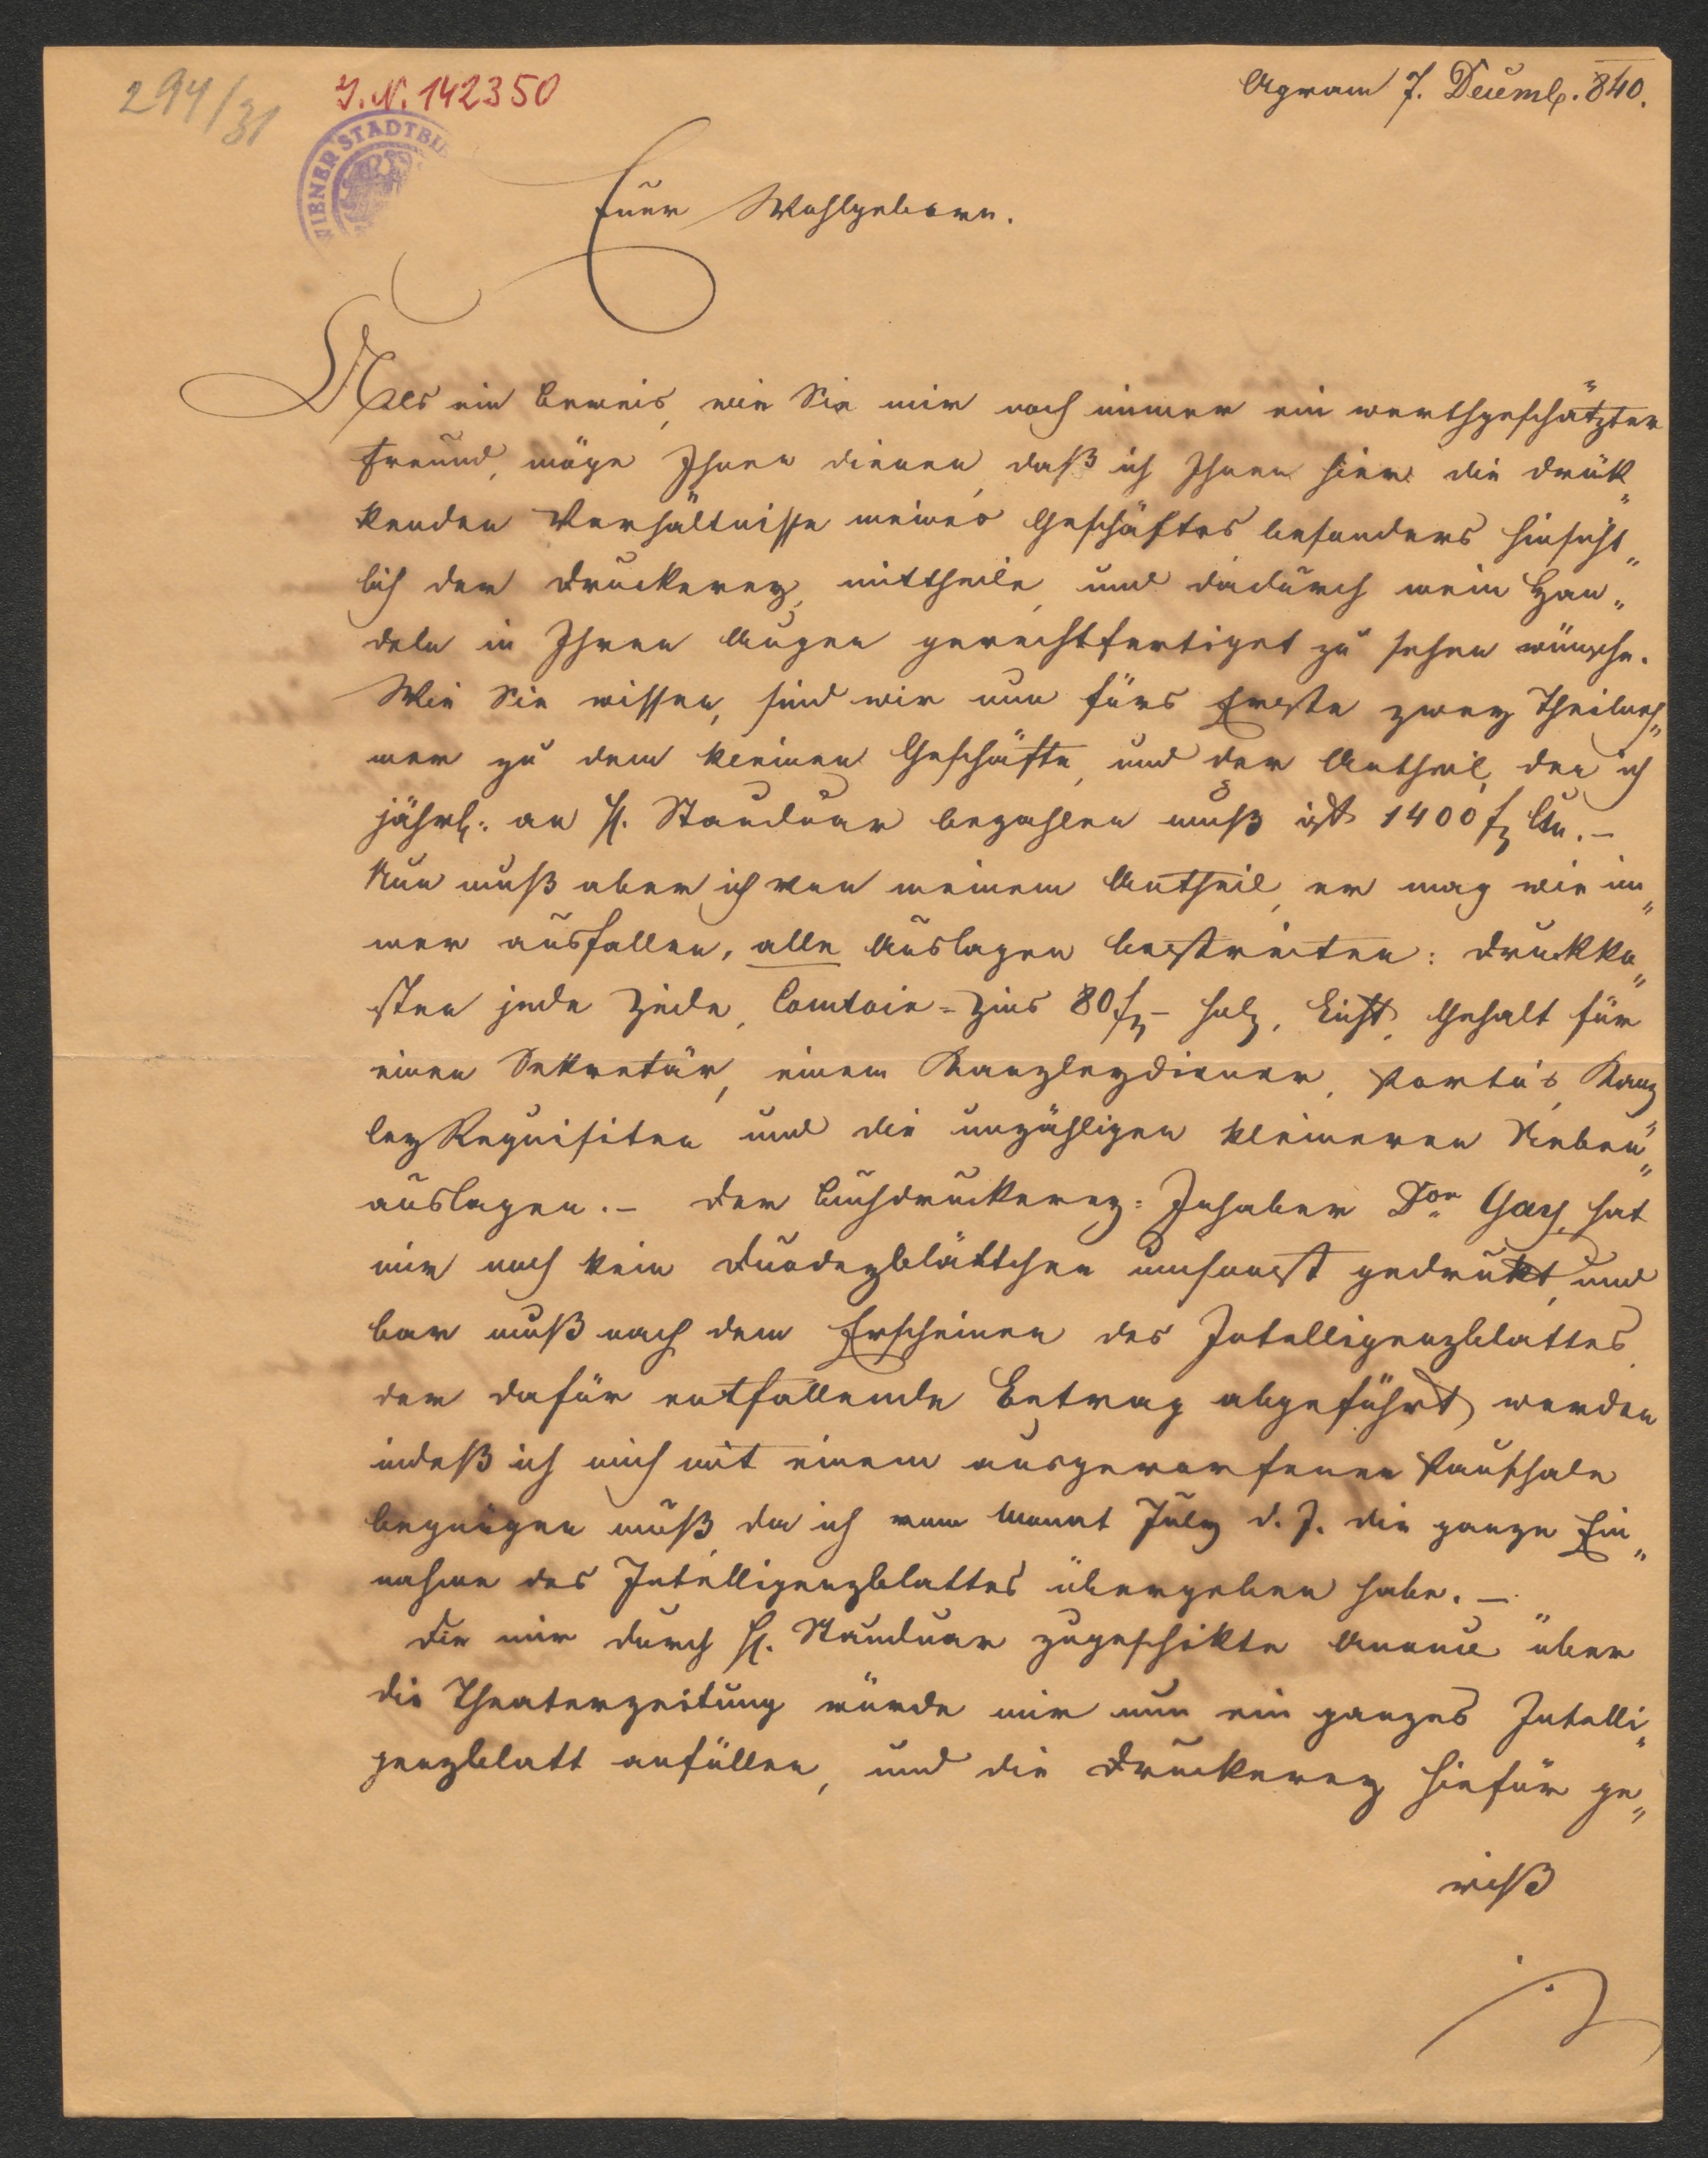 294/31
I.N. 142350
WIENER STADTBI
Agram 7. Decemb. 840.
Euer Wohlgeborn.
Als ein Beweis, wie Sie mir noch immer ein werthgeschätzter
Freund, möge Ihnen dienen, daß ich Ihnen hier die drük„
kenden Verhältnisse meines Geschäftes besonders hinsicht„
lich der Druckerey, mittheile, und dadurch mein Han„
deln in Ihren Augen gerechtfertiget zu sehen wünsche.
Wie Sie wissen, sind wir nun fürs Erste zwey Theilneh„
mer zu dem kleinen Geschäfte, und der Antheil, den ich
jährl: an H. Stauduar bezahlen muß ist 1400 f CM. –
Nun muß aber ich von meinem Antheil, er mag wie im„
mer ausfallen, alle Auslagen bestreiten: Druckko„
sten jede Zeile, Comtoir-Zins 80 f – Holz, Licht, Gehalt für
einen Sekretär, einem Kanzleydiener, Porto's, Kanz„
ley Requisiten und die unzähligen kleineren Neben„
auslagen. – Der Buchdruckerey-Inhaber Dor Gay, hat
mir noch kein Duodezblättchen umsonst gedrukt, und
bar muß nach dem Erscheinen des Intelligenzblattes
der dafür entfallende Betrag abgeführt werden
indeß ich mich mit einem ausgeworfenen Pauschale
begnügen muß, da ich vom Monat July d. J. die ganze Ein„
nahme des Intelligenzblattes übergeben habe. –
Die mir durch H. Stauduar zugeschikte Annonce über
die Theaterzeitung würde mir nun ein ganzes Intelli„
genzblatt anfüllen, und die Druckerey hiefür ge„
wiß